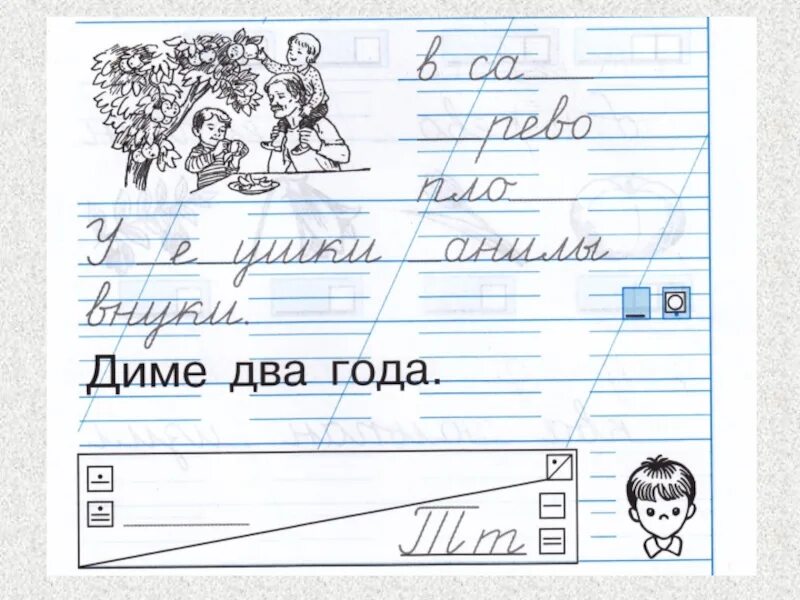 в са____
____рево
пло____
У __е__ушки __анилы
внуки.
Диме два года.
Тт